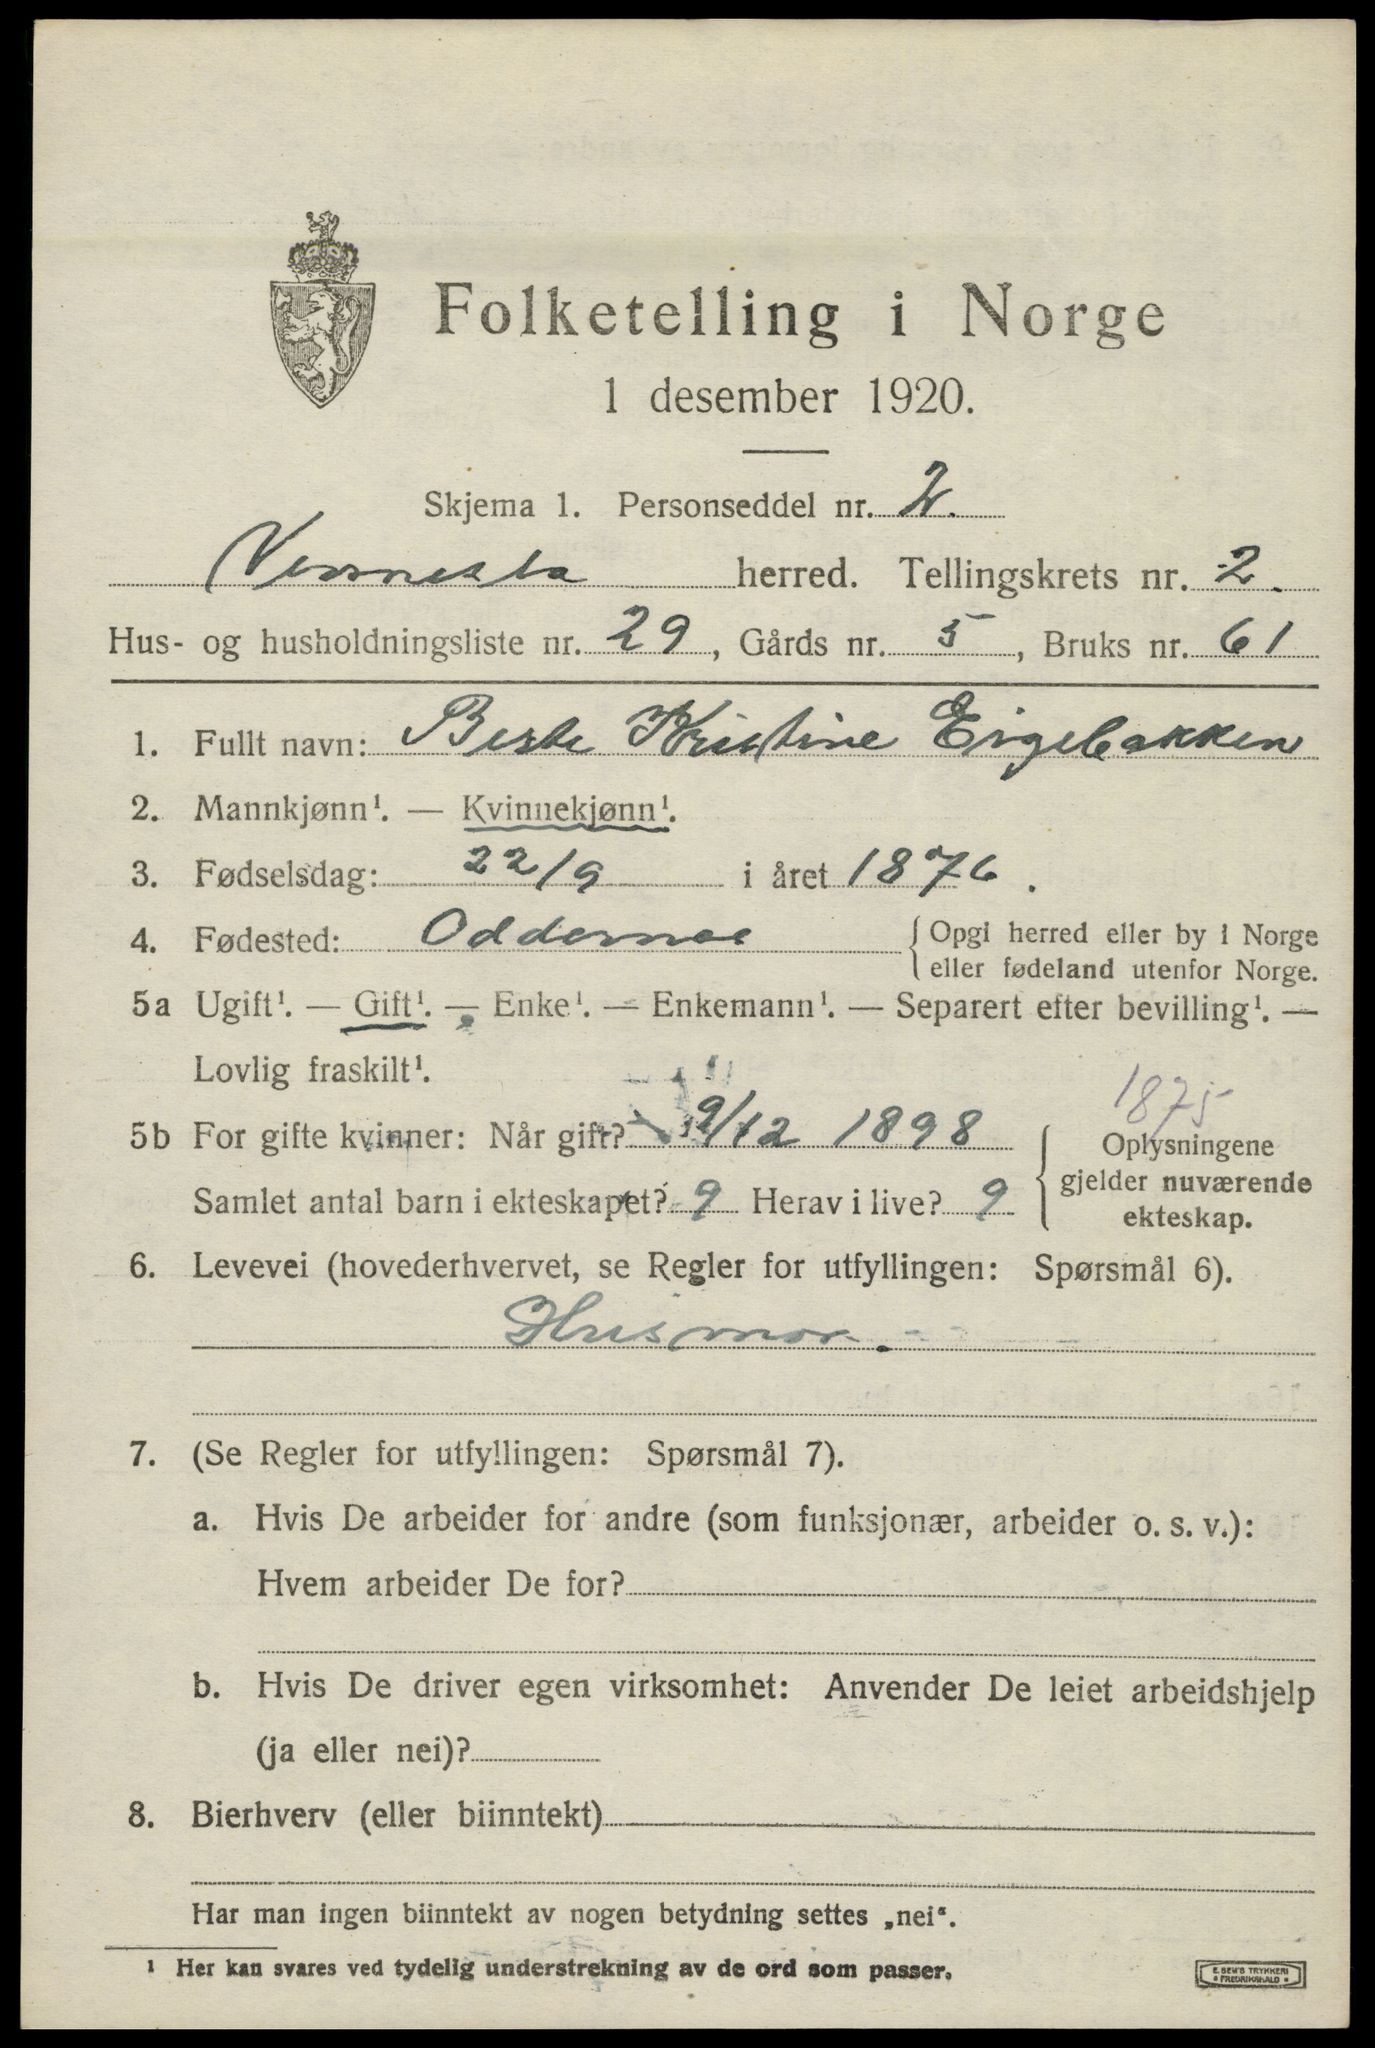 Folketelling i Norge
1 desember 1920.
Skjema 1. Personseddel nr. 2.
Vennesla herred. Tellingskrets nr. 2.
Hus- og husholdningsliste nr. 29, Gårds nr. 5, Bruks nr. 61
1. Fullt navn: Kristine Eigebakken
2. Mannkjønn¹. — Kvinnekjønn¹.
3. Fødselsdag: 22/9 i året 1876.
4. Fødested: Oddernes { Opgi herred eller by i Norge
eller fødeland utenfor Norge.
5a Ugift¹. — Gift¹. — Enke¹. — Enkemann¹. — Separert efter bevilling¹. —
Lovlig fraskilt¹.
1875
5b For gifte kvinner: Når gift? 9/12 1898 { Oplysningene
gjelder nuværende
Samlet antal barn i ekteskapet? 9 Herav i live? 9
ekteskap.
6. Levevei (hovederhvervet, se Regler for utfyllingen: Spørsmål 6).
Husmor.
7. (Se Regler for utfyllingen: Spørsmål 7).
a. Hvis De arbeider for andre (som funksjonær, arbeider o. s. v.):
Hvem arbeider De for?
b. Hvis De driver egen virksomhet: Anvender De leiet arbeidshjelp
(ja eller nei)?
8. Bierhverv (eller biinntekt)
Har man ingen biinntekt av nogen betydning settes „nei“.
¹ Her kan svares ved tydelig understrekning av de ord som passer.
E. SEM'S TRYKKERI
FREDRIKSHALD